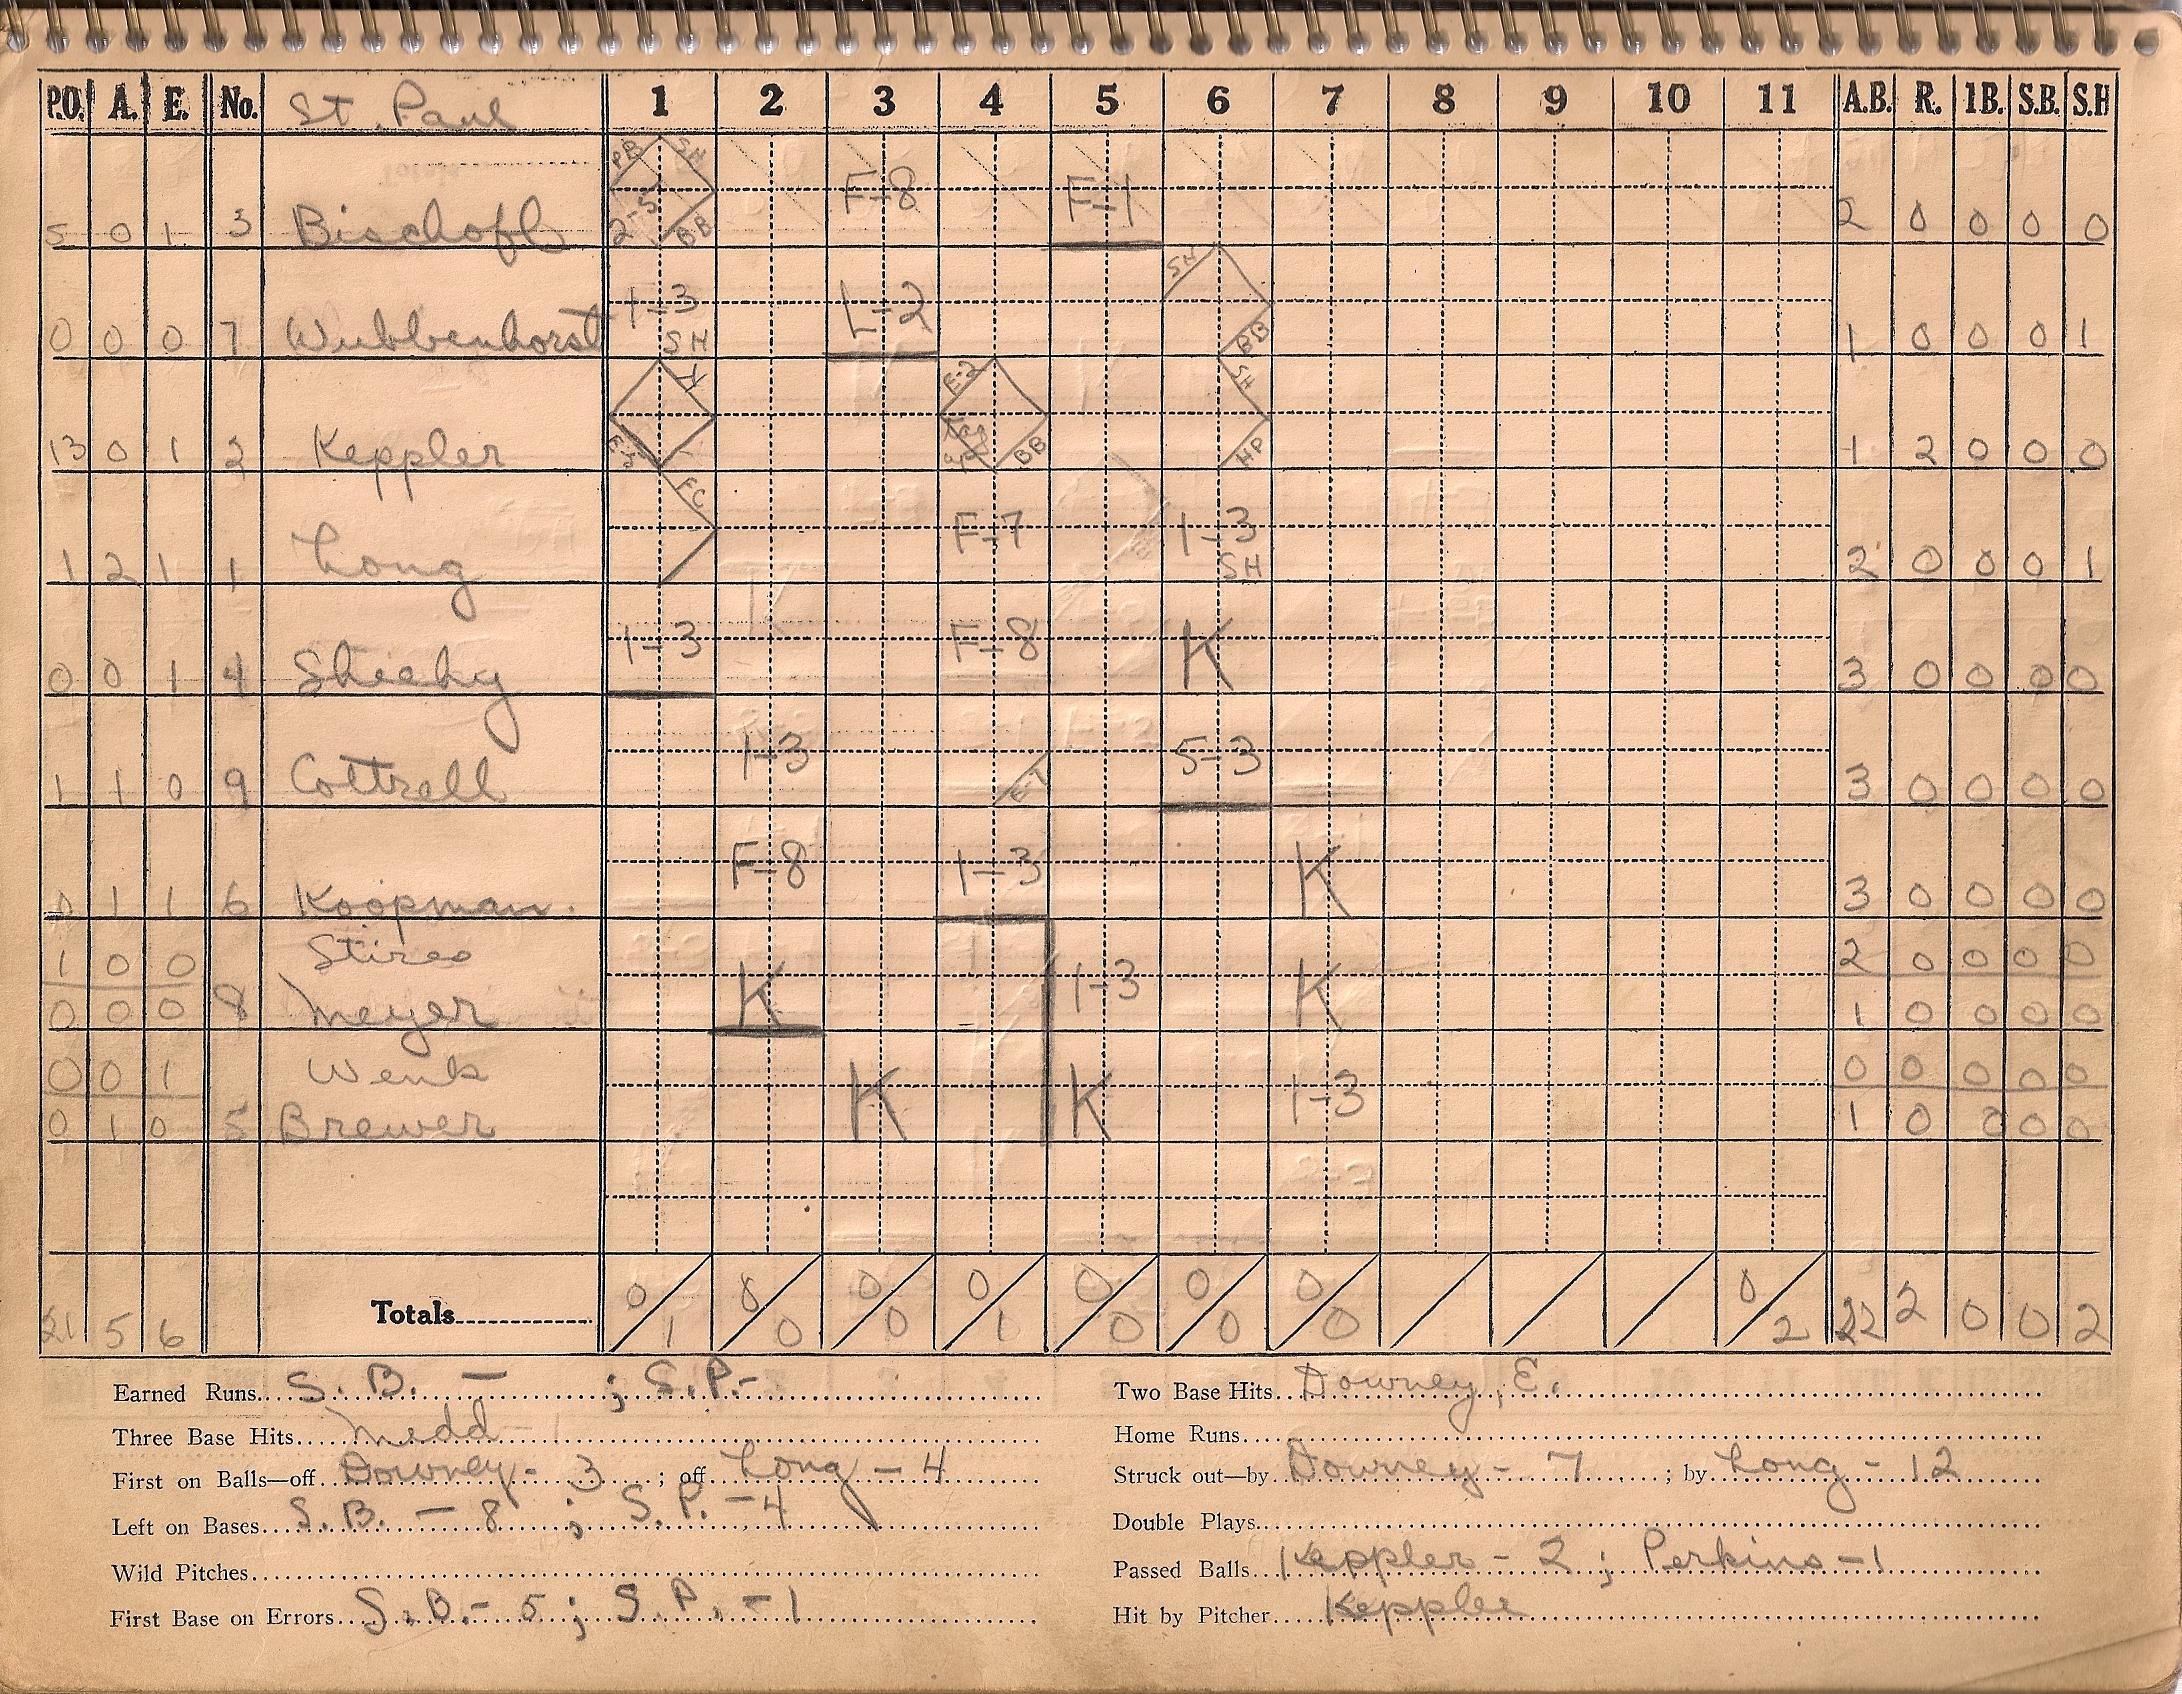 P.O. A. E. No. St. Paul 1 2 3 4 5 6 7 8 9 10 11 A.B. R. 1B. S.B. S.H
PB SH 2-5 BB F-8 F-1
5 0 1 3 Bischoff 2 0 0 0 0
1-3 SH L-2 SH BB
0 0 0 7 Wubbenhorst 1 0 0 0 1
E-5 E-2 BB SH HP
13 0 1 2 Keppler 1 2 0 0 0
FC F-7 1-3 SH
1 2 1 1 Long 2 0 0 0 1
1-3 F-8 K
0 0 1 4 Sheehy 3 0 0 0 0
1-3 E-7 5-3
1 1 0 9 Cottrell 3 0 0 0 0
F-8 1-3 K
0 1 1 6 Koopman. 3 0 0 0 0
1 0 0 Stires 2 0 0 0 0
K 1-3 K
0 0 0 8 Meyer 1 0 0 0 0
0 0 1 Wenk 0 0 0 0 0
K K 1-3
0 1 0 5 Brewer 1 0 0 0 0
21 5 6 Totals 0/1 0/0 0/0 0/1 0/0 0/0 0/0 0/2 22 2 0 0 2
Earned Runs S.B. — ; S.P.-
Two Base Hits Downey, E.
Three Base Hits Medd
Home Runs
First on Balls—off Downey - 3 ; off Long - 4
Struck out—by Downey - 7 ; by Long - 12
Left on Bases S.B. - 8 ; S.P. - 4
Double Plays
Wild Pitches
Passed Balls Keppler - 2 ; Perkins - 1
First Base on Errors S.B. - 5 ; S.P. - 1
Hit by Pitcher Keppler